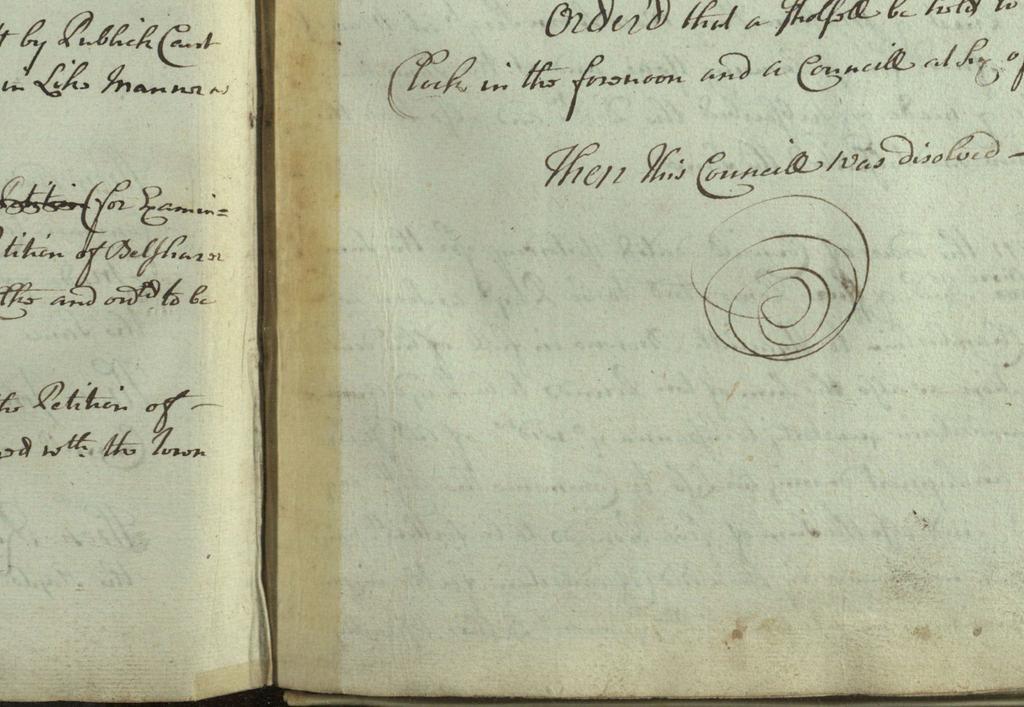 t by Publick Cant
in Like Manner as
Petition (for Examin=
tition of Belsharer
the and ord'd to be
the Petition of —
ed wth. the Town
Order'd that a Tholsell be held
Clock in the forenoon and a Councill at Six of
Then this Councill was disolved —